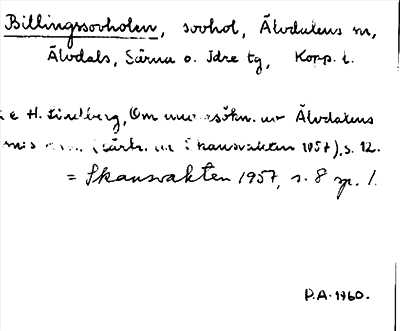 Billingssovholen, sovhol, Älvdalens m,
Älvdals, Särna o. Idre tg, Kopp. l.
H. Lindberg, Om Älvdalens
(särtr. ur Skansvakten 1957), s. 12.
= Skansvakten 1957, s. 8 sp. 1.
P.A. 1960.